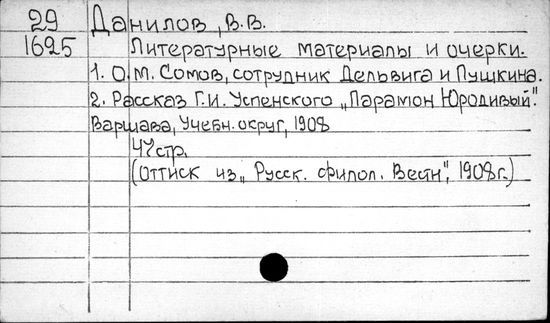 29 Данилов, В.В.
1625 Литературные материалы и очерки.
1. О.М. Сомов, сотрудник Дельвига и Пушкина.
2. Рассказ Г.И. Успенского „Парамон Юродивый".
Варшава, Учебн. округ, 1908
44 стр.
(Оттиск из „Русск. филол. Вестн", 1908 г.)